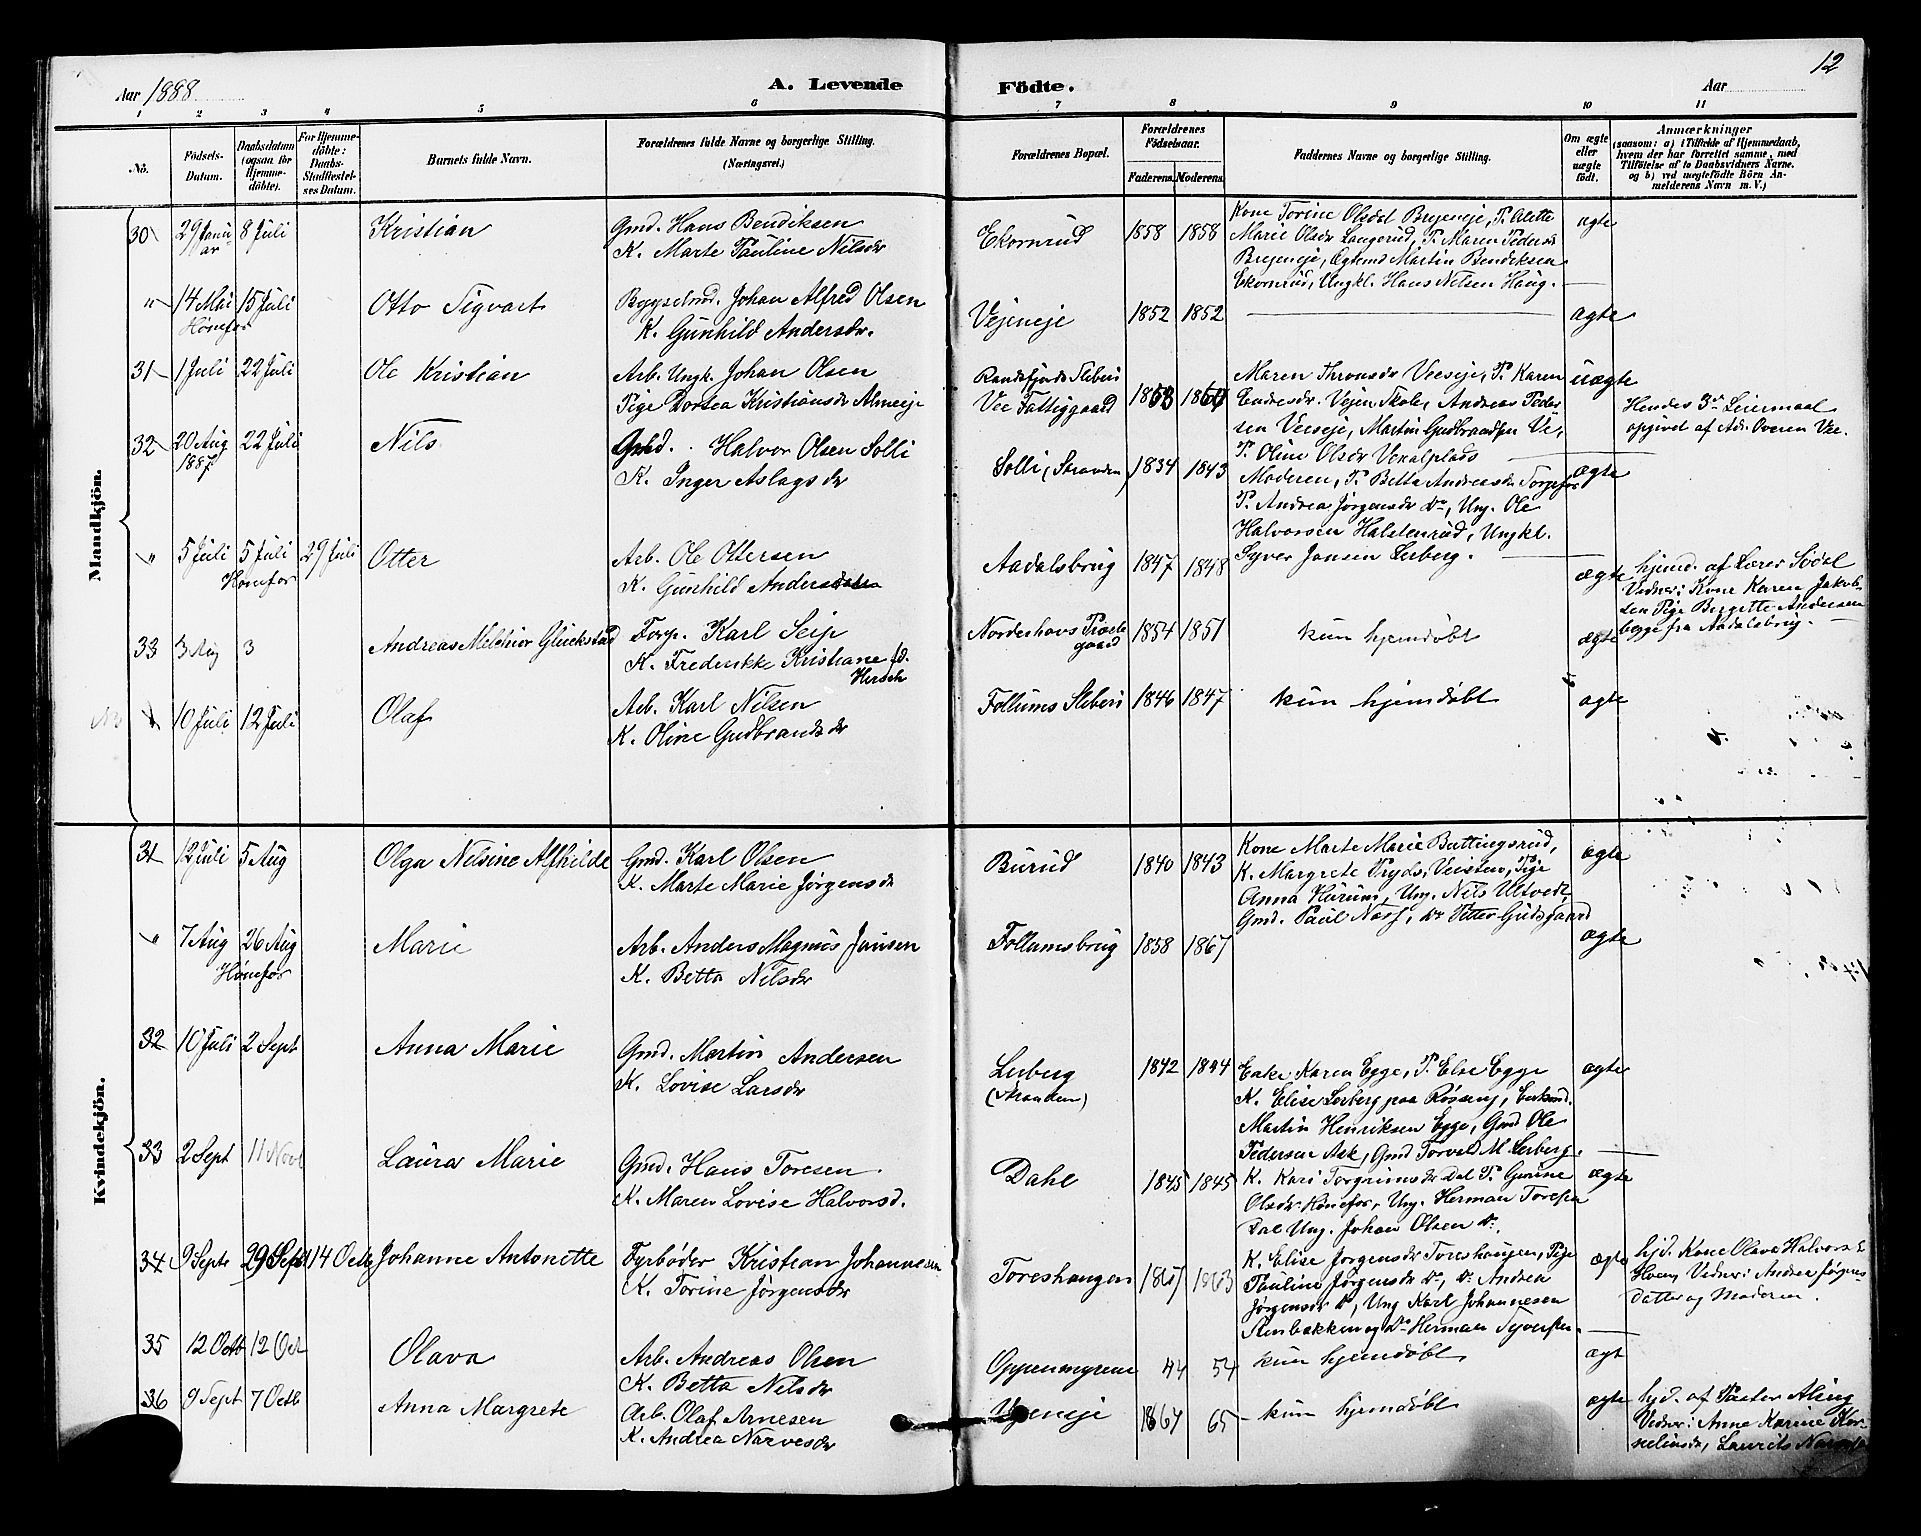 12
Aar 1888. A. Levende Födte. Aar
1 2 3 4 5 6 7 8 9 10 11
No. Födsels-Datum. Daabsdatum (ogsaa for Hjemme-döbte). For Hjemme-döbte: Daabs-Stadfæstel-ses Datum. Barnets fulde Navn. Forældrenes fulde Navne og borgerlige Stilling. (Næringsvei.) Forældrenes Bopæl. Forældrenes Födselsaar. Faderens. Moderens. Faddernes Navne og borgerlige Stilling. Om ægte eller uægte födt. Anmærkninger (saasom: a) i Tilfælde af Hjemmedaab, hvem der har forrettet samme, med Tilföielse af to Daabsvidners Navne. og b) ved uegtefödte Börn An-melderens Navn m. V.)
Mandkjön.
30 29 Janu-ar 8 Juli Kristian Gmd. Hans Bendiksen
K. Marte Pauline Nilsdr Ekornrud 1858 1858 Kone Torine Olsdat Brejeneje, P. Alette
Marie Olsdr Langerud, P. Maren Pedersdr
Brejeneje, Egtemd Martin Bendiksen
Ekornrud, Ungkl. Hans Nilsen Haug. ægte
" 14 Mai 15 Juli Hønefos Otto Sigvart Byggselmd. Johan Alfred Olsen
K. Gunhild Andersdr. Vejeneje 1852 1852 ægte
31 1 Juli 22 Juli Ole Kristian Arb. Ungk. Johan Olsen
Pige Dortea Kristiansdr Almeje Randsfjords Sliberi
Vee Fattiggaard 1853 1860 Maren Thronsdr Veeseje, P. Karen
Endresdr. Vejen Skole, Andreas Peder-
sen Veeseje, Martin Gudbrandsen Ve,
P. Oline Olsdr uægte Hendes 3de Leiermaal
opgivet af Adr. Overen Vee.
32 20 Aug 1887 22 Juli Nils Gmd. Halvor Olsen Solli
K. Inger Aslagsdr Solli (Stranden) 1834 1843 Moderen, P. Betta Andreasdr
P. Andrea Jørgensdr Do, Ung. Ole
Halvorsen Halstenrud, Ungkl.
Syver Jansen Lerberg. ægte
" 5 Juli 5 Juli 29 Juli Hønefos Otter Arb. Ole Ottersen
K. Gunhild Andersdatter Aadalsbrug 1847 1848 ægte hjemd. af Lærer Sødal
Vidner: Kone Karen Jakob-
sen Pige Bergette Andersen
begge fra Aadalsbrug.
33 3 Aug 3 Andreas Melchior Glückstad Forp. Karl Seip
K. Frederikke Kristiane fd.
Hersch Norderhovs Præste
gaard 1854 1851 kun hjemdøbt ægte
10 Juli 12 Juli Olaf Arb. Karl Nilsen
K. Oline Gudbrandsdr Follums Sliberi 1846 1847 kun hjemdøbt ægte
Kvindekjön.
31 12 Juli 5 Aug Olga Nilsine Alfhilde Gmd. Karl Olsen
K. Marte Marie Jørgensdr Burud 1840 1843 Kone Marte Marie Buttingsrud,
K. Margrete Pryds, Veisten, Pige
Anna Hurum, Ung. Nils Ultvedt,
Gmd. Paul Næss, do Petter Gudsgaard ægte
" 7 Aug 26 Aug Hønefos Marie Arb. Anders Magnus Jansen
K. Betta Nilsdr Follumsbrug 1858 1867 ægte
32 10 Juli 2 Sept Anna Marie Gmd. Martin Andersen
K. Lovise Larsdr Lerberg
(Stranden) 1842 1844 Enke Karen Egge, P. Else Egge
K. Elise Lerberg paa Røseng, Enkemd.
Martin Henriksen Egge, Gmd Ole
Pedersen Ask, Gmd Torvald M. Lerberg. ægte
33 2 Sept 11 Novb Laura Marie Gmd. Hans Toresen
K. Maren Lovise Halvorsd. Dahl 1845 1845 K. Kari Torgrimsdr Dal P. Gunine
Olsdr Hønefos, Ung. Herman Toresen
Dal Ung. Johan Olsen do. ægte
34 9 Septr 29 Sept 14 Octb Johanne Antonette Fyrbøder Kristian Johannesen
K. Torine Jørgensdr Toreshaugen 1867 1863 K. Elise Jørgensdr Toreshaugen, Pige
Pauline Jørgensdr do, do Andrea
Jørgensdr do, Ung Karl Johannesen
Stenbakken og do Herman Syversen. ægte hjd. Kone Olava Halvorsdr
Hoem, Vidner: Andrea Jørgens-
datter og Moderen.
35 12 Octb 12 Oct Olava Arb. Andreas Olsen
K. Betta Nilsdr Oppenmyrene 44 54 kun hjemdøbt ægt
36 9 Sept 7 Octb Anna Margrete Arb. Olaf Arnesen
K. Andrea Narvesdr Vejeneje 1867 65 kun hjemdøbt ægte hjd. af Pastor Aling
Vidner: Anne Karine Kor-
nelinsdr, Laurits